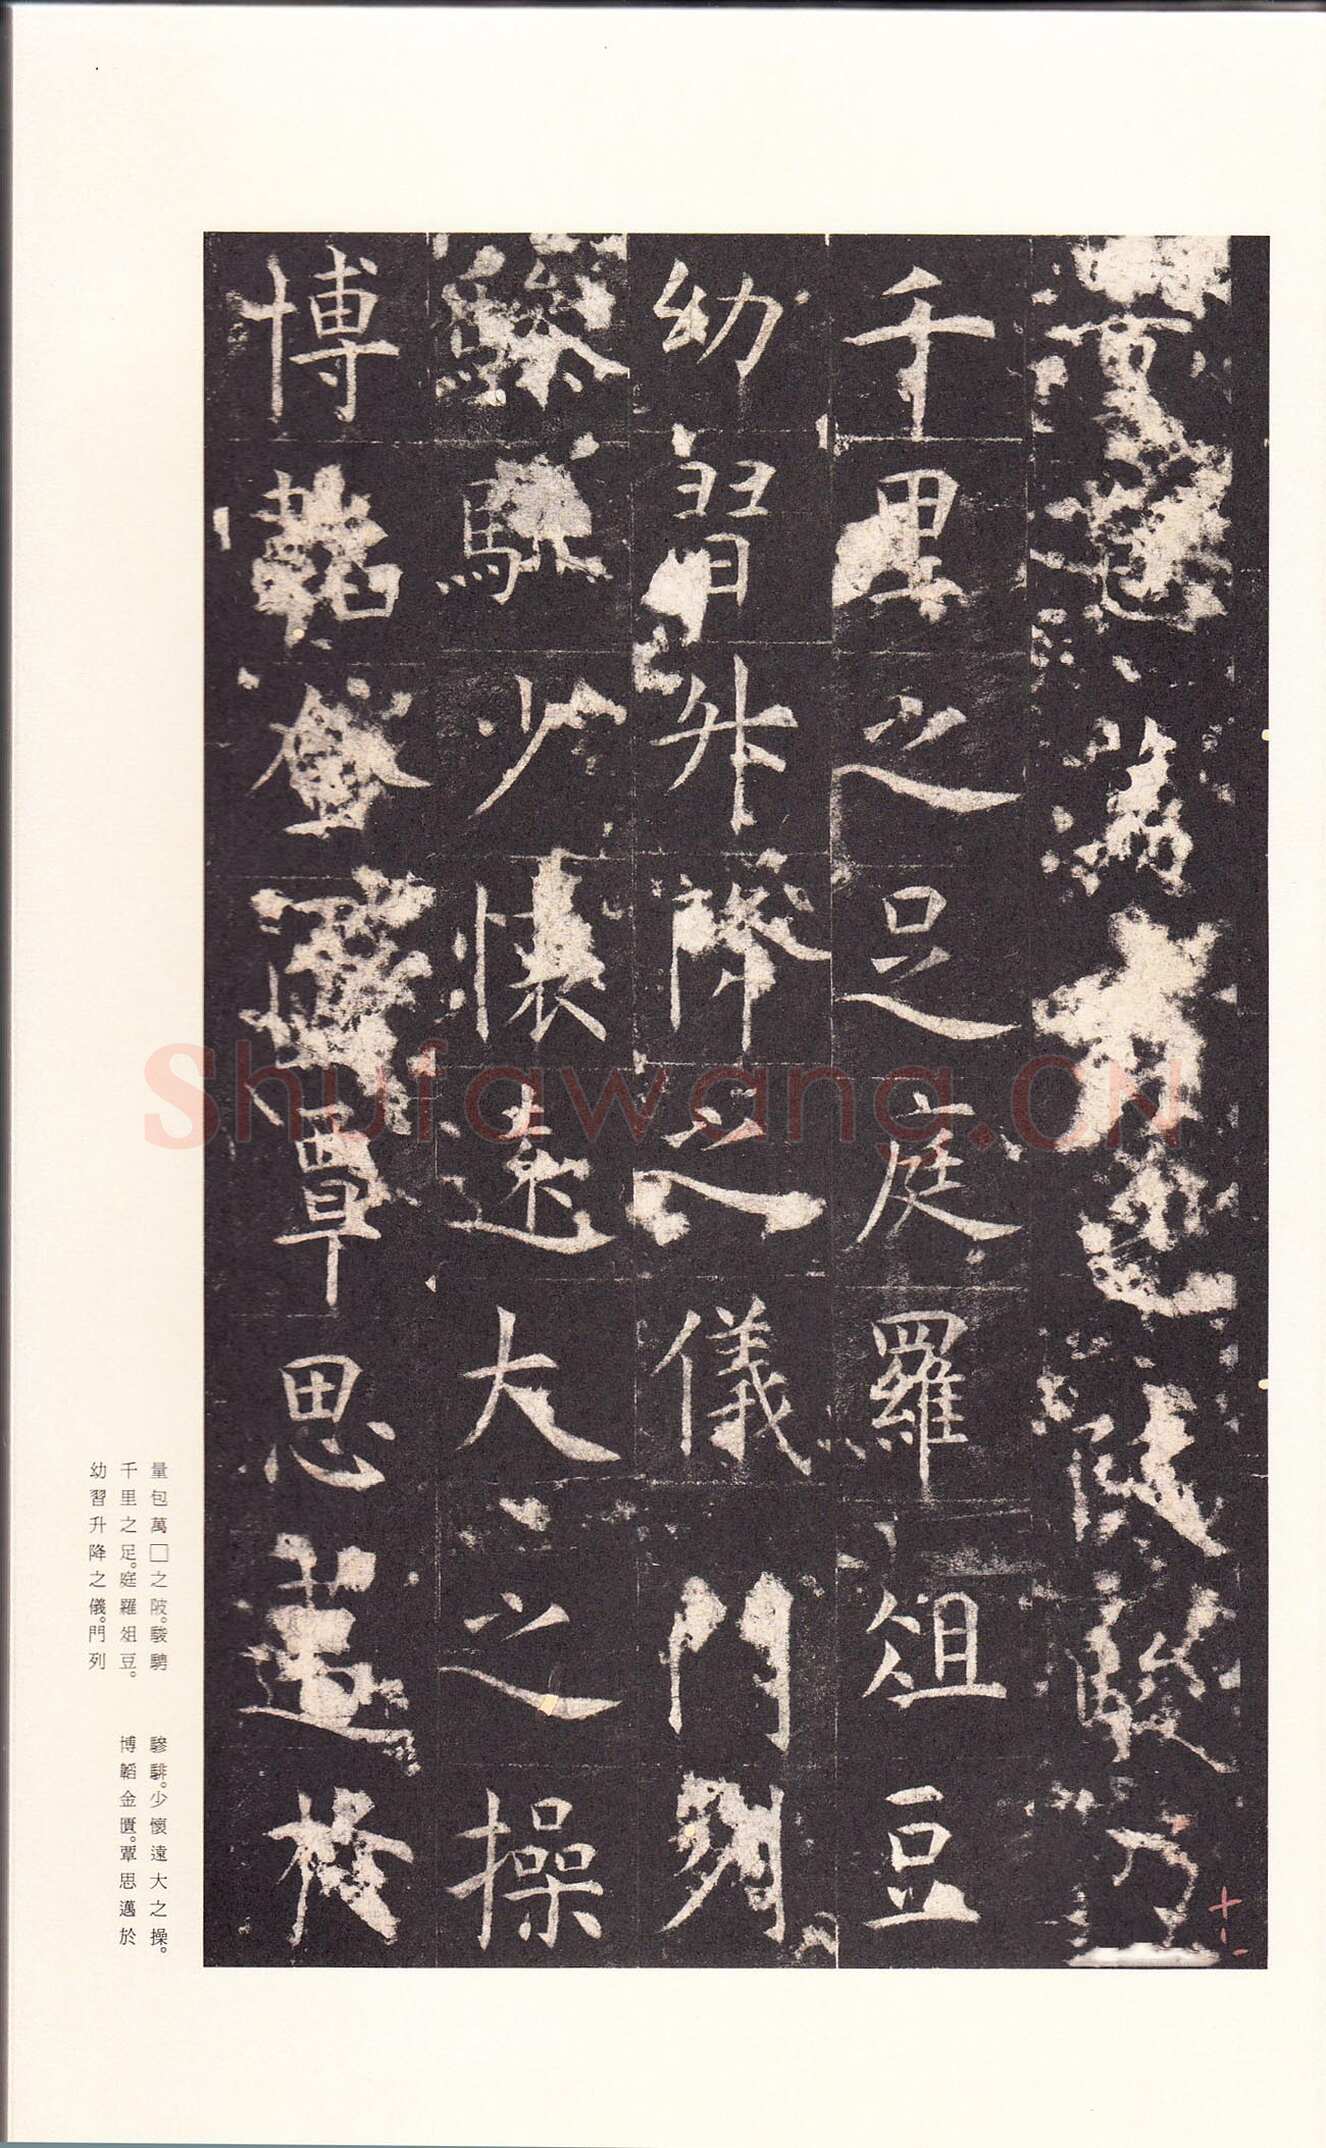 陂駿
千里之足庭羅俎豆
幼習升降之儀門列
驂騑少懷遠大之操
博韜金匱覃思邁於
十八
量包萬□之陂。駿騁
千里之足。庭羅俎豆。
幼習升降之儀。門列
驂騑。少懷遠大之操。
博韜金匱。覃思邁於
Shufawang.CN